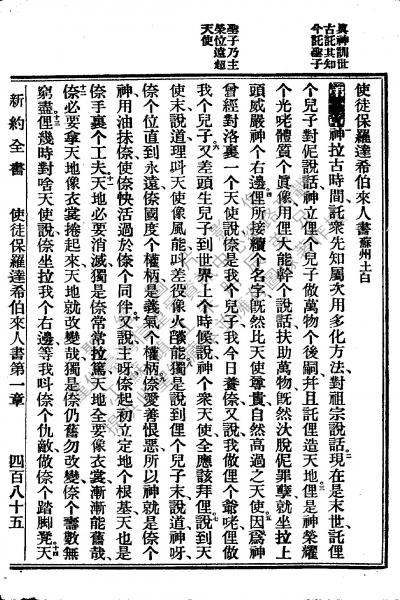 真神訓世
古託其知
今託聖子
聖子乃主
榮位遠超
天使
使徒保羅達希伯來人書蘇州土白
神拉古時間託衆先知屢次用多化方法對祖宗說話現在是末世託俚
个兒子對伲說話神立俚个兒子做萬物个後嗣幷且託俚造天地俚是神榮耀
个光咾體質个眞像用俚大能幹个說話扶助萬物旣然汏脫伲罪孽就坐拉上
頭威嚴神个右邊俚所接續个名字旣然比天使尊貴自然高過之天使因爲神
曾經對洛裏一个天使說倷是我个兒子我今日養倷又說我做俚个爺咾俚做
我个兒子又差頭生兒子到世界上个時候說神个衆天使全應該拜俚說到天
使末說道理呌天使像風能呌差役像火燄能獨是說到俚个兒子末說道神呀
倷个位直到永遠倷國度个權柄是義氣个權柄倷愛善恨惡所以神就是倷个
神用油抹倷使倷快活過於倷个同伴又說主呀倷起初立定地个根基天也是
倷手裏个工夫天地必要消滅獨是倷常常拉篤天地全要像衣裳漸漸能舊哉
倷必要拿天地像衣裳捲起來天地就改變哉獨是倷仍舊勿改變倷个壽數無
窮盡俚幾時對啥天使說倷坐拉我个右邊等我呌倷个仇敵做倷个踏脚凳天
新約全書
使徒保羅達希伯來人書第一章
四百八十五